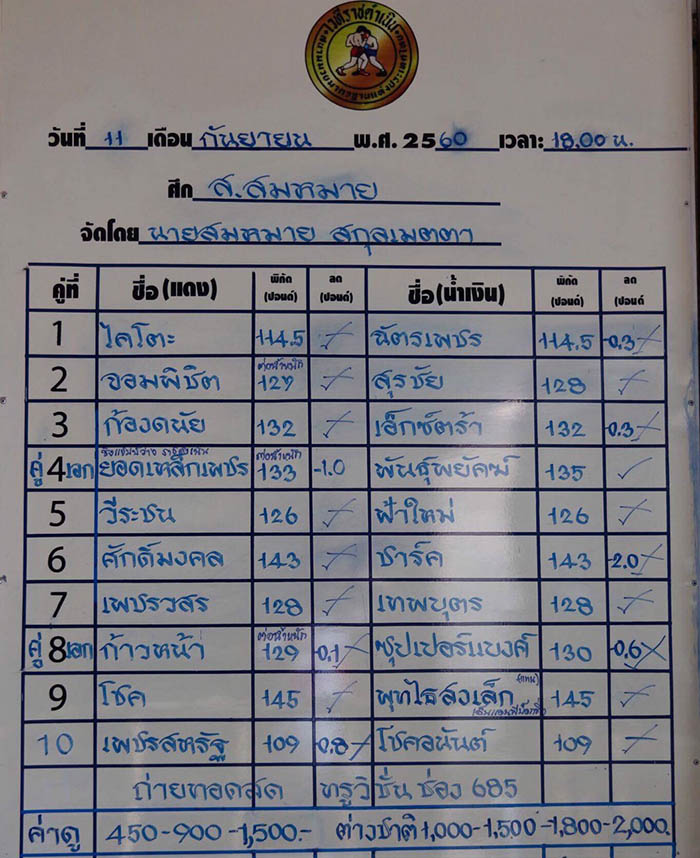 เวทีราชดำเนิน
วันที่ 11 เดือน กันยายน พ.ศ. 2560 เวลา: 18.00 น.
ศึก ส.สมหมาย
จัดโดย นายสมหมาย สกุลเมตตา
คู่ที่ ชื่อ (แดง) พิกัด (ปอนด์) ลด (ปอนด์) ชื่อ (น้ำเงิน) พิกัด (ปอนด์) ลด (ปอนด์)
1 ไคโตะ 114.5 ฉัตรเพชร 114.5 -0.3
2 จอมพิชิต ต่อน้ำหนัก 127 สุรชัย 128
3 ก้องดนัย 132 เอ็กซ์ตร้า 132 -0.3
คู่ 4 เอก ยอดเหล็กเพชร ต่อน้ำหนัก 133 -1.0 พันธุ์พยัคฆ์ 135
5 วีระชน 126 ฟ้าใหม่ 126
6 ศักดิ์มงคล 143 ชาร์ค 143 -2.0
7 เพชรวสร 128 เทพบุตร 128
คู่ 8 เอก ก้าวหน้า ต่อน้ำหนัก 129 -0.1 ซุปเปอร์แบงค์ 130 -0.6
9 โชค 145 พุทไธสงเล็ก (แทน) 145
10 เพชรสหรัฐ 109 -0.8 โชคอนันต์ 109
ถ่ายทอดสด ทรูวิชั่น ช่อง 685
ค่าดู 450-900-1,500.- ต่างชาติ 1,000-1,500-1,800-2,000.